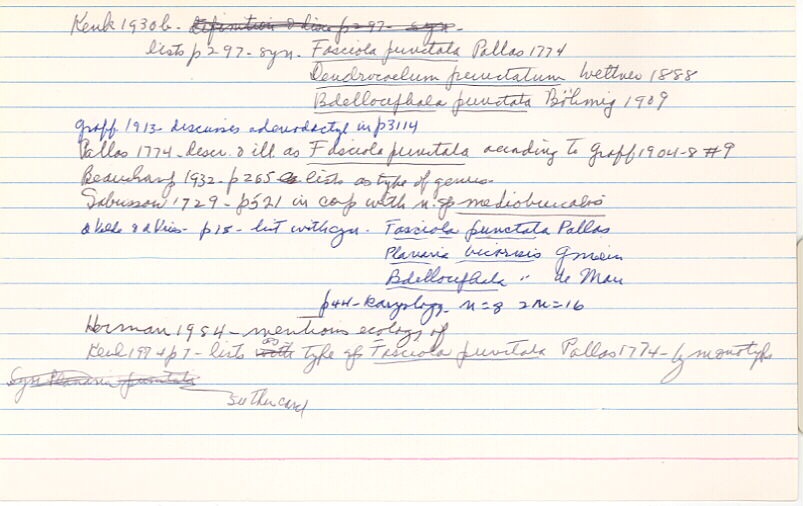 Kenk 1930b - Definition & disc p297 - syn.
lists p297 - syn. Fasciola punctata Pallas 1774
Dendrocoelum punctatum Weltner 1888
Bdellocephala punctata Böhmig 1909
Graff 1913 - discusses adenodactyl in p3114
Pallas 1774 - descr. & ill as Fasciola punctata according to Graff 1904-8 #9
Beauchamp 1932 - p265 lists as type of genus.
Sabussow 1929 - p521 in comp with n. sp mediobuccalis
p18 - list with syn. Fasciola punctata Pallas
Planaria Gmein
Bdellocephala " de Man
p44 - Karyology - n=8 2n=16
Herman 1984 - mentions ecology of
Kenk 1974 p7 - lists as type of Fasciola punctata Pallas 1774 - by monotypy
Syn Planaria punctata
see other card